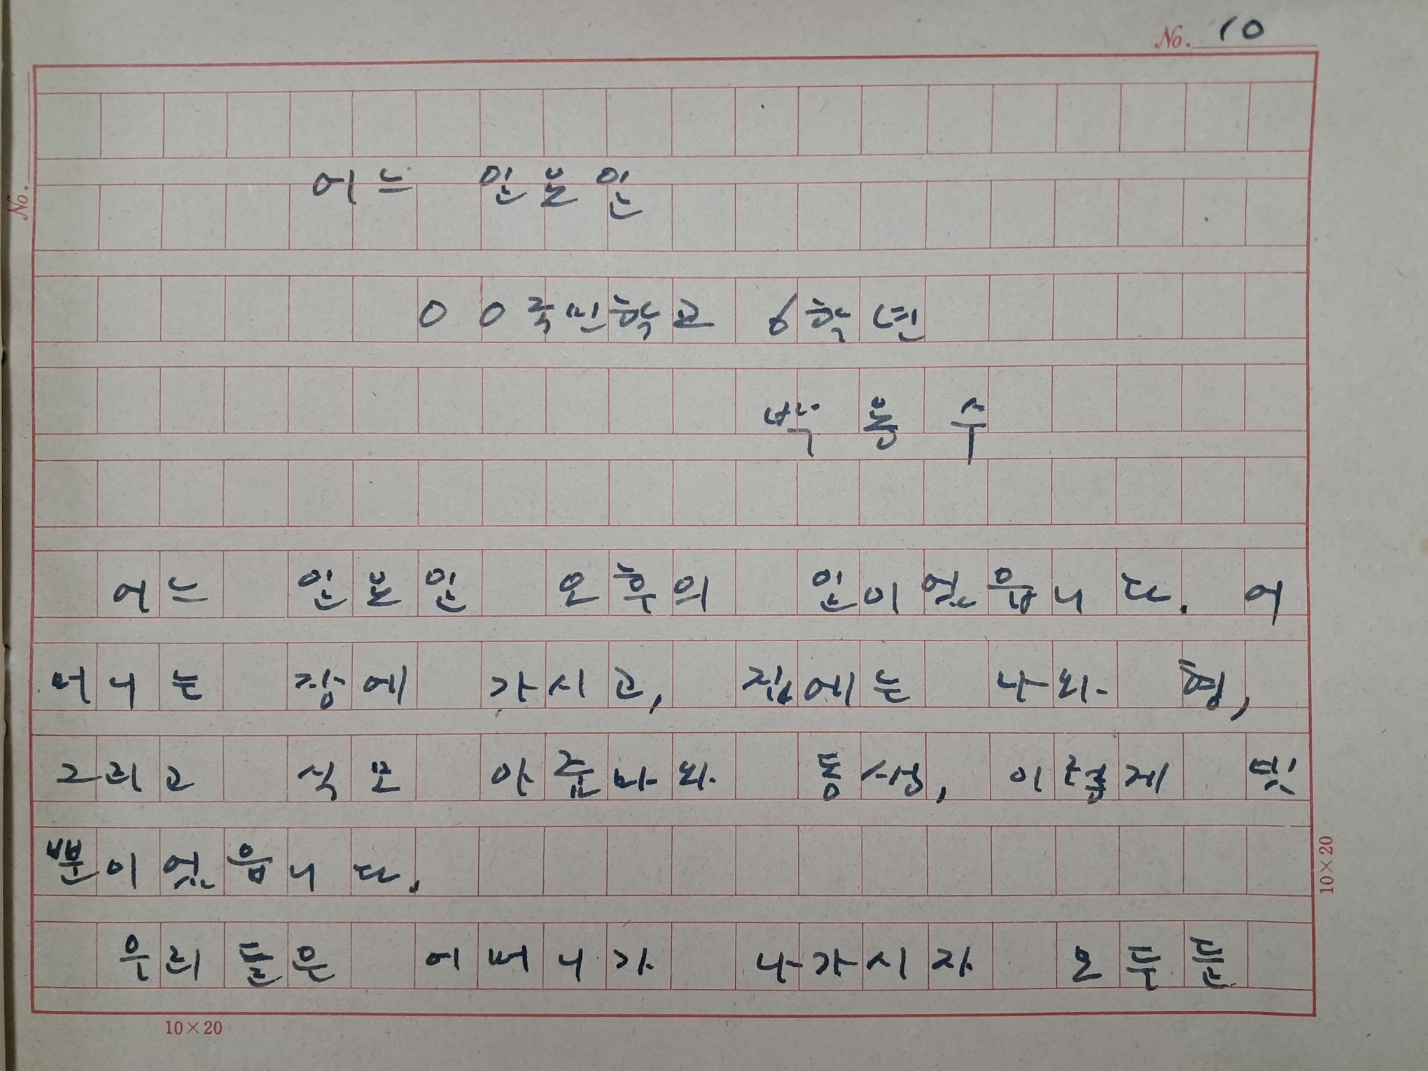 No. 10
어느 일요일
00국민학교 6학년
박흥수
어느 일요일 오후의 일이었읍니다. 어
머니는 장에 가시고, 집에는 나와 형,
그리고 식모 아줌마와 동생, 이렇게 넷
뿐이었읍니다.
우리들은 어머니가 나가시자 모두들
10×20
10×20
No.